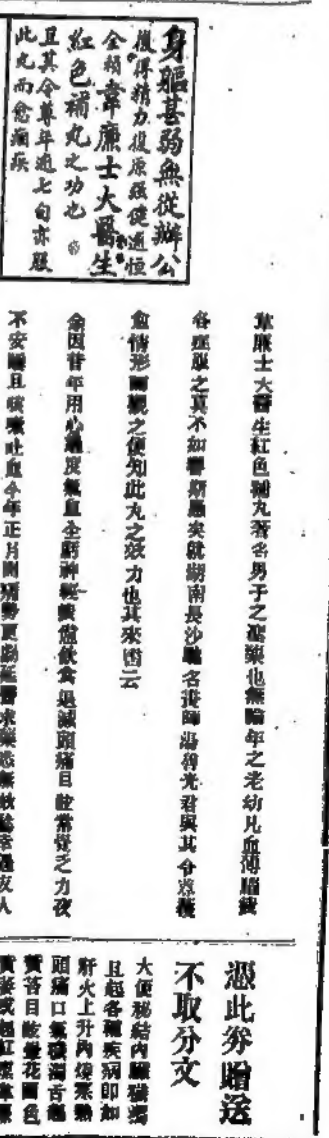 身軀甚弱無從辦公
復得精力復原強健逾恒
全賴韋廉士大醫生
紅色補丸之功也
且其令尊年逾七旬亦服
此丸而愈痼疾
韋廉士大醫生紅色補丸著名男子之聖藥也無論年之老幼凡血薄腦
各症服之莫不如響斯應矣就湖南長沙著名律師湯 光君與其令尊獲
愈情形觀之便知此丸之效力也其來函云
余因昔年用心過度氣血全虧神經 飲食退減頭痛目眩常覺乏力夜
不安睡且咳嗽吐血今年正月間病勢更劇延醫求藥 無效 友人
憑此券贈送
不取分文
大便秘結內臟積濁
且起各種疾病即如
肝火上升內燥寒熱
頭痛口氣穢濁舌起
黃苔目眩暈花面色
黃 或起紅